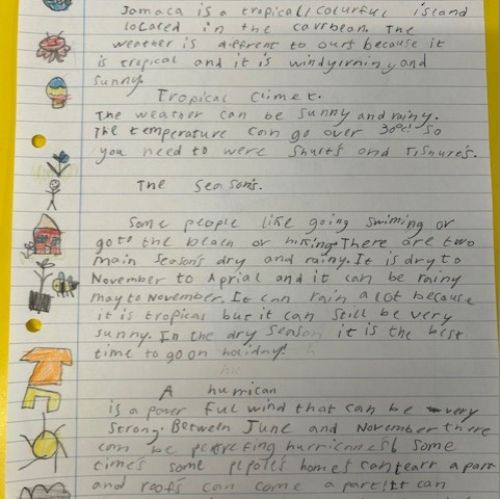 Jamaca is a tropical/colourful island
located in the carrbean. The
weather is diffrent to ours because it
is tropical and it is windy, rainy and
sunny.
Tropical Climet.
The weather can be sunny and rainy.
The temperature can go over 30°c! So
you need to were shurts and Tishures.
The Season's.
Some people like going swiming or
go to the beach or hiking. There are two
main season's dry and rainy. It is dry to
November to Aprial and it can be rainy
may to November. It can rain a lot because
it is tropical but it can still be very
sunny. In the dry season it is the best
time to go on holiday!
A hurrican
is a power ful wind that can be very
strong. Between June and November there
can be hurricanes! Some
times some peploes homes can tearr a part
and roofs can come a part! It can